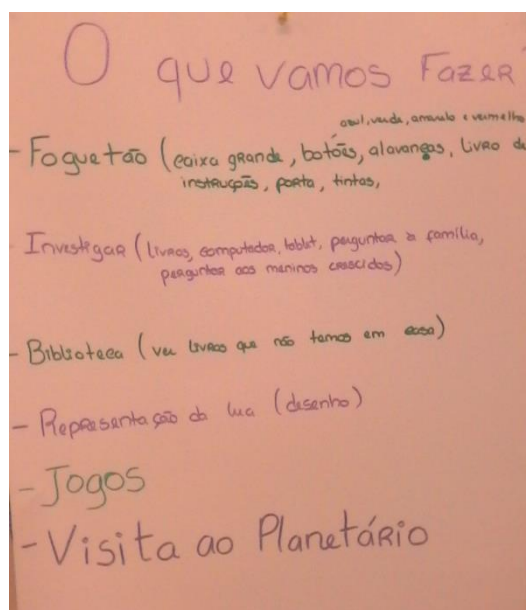 O que vamos Fazer
azul, verde, amarelo e vermelho
- Foguetão (caixa grande, botões, alavancas, livro de
instruções, porta, tintas,
- Investigar (livros, computador, tablet, perguntar à família,
perguntar aos meninos crescidos)
- Biblioteca (ver livros que não temos em casa)
- Representação da lua (desenho)
- Jogos
- Visita ao Planetário